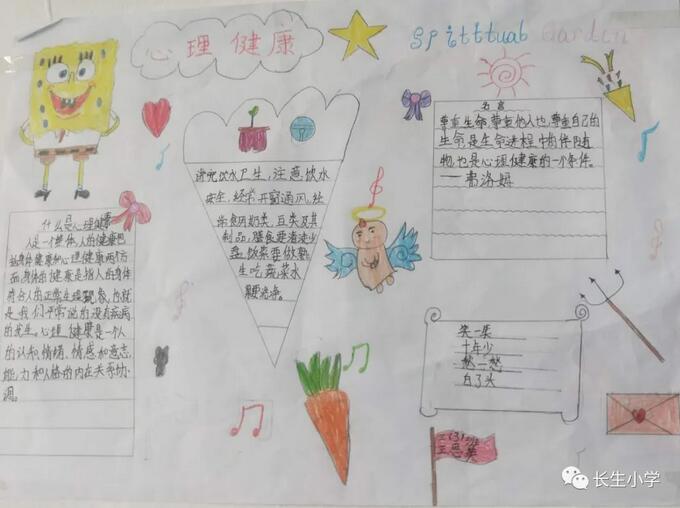 心理健康
Spitttual Gardin
名言
尊重生命、尊重他人也尊重自己的
生命是生命进程中的伴随
物，也是心理健康的一个条件。
——弗洛姆
讲究饮水卫生，注意饮水
安全，经常开窗通风，经
常食用奶类、豆类及其
制品，膳食要清淡少
盐，饮菜要做熟，
生吃蔬菜水
果要洗净。
什么是心理健康
人是一个整体，人的健康包
括身体健康和心理健康两个方
面，身体的健康是指人的身体
符合人的正常生理现象，也就
是我们平常说的没有疾病
的发生。心理健康是一个人
的认知、情绪、情感和意志、
能力和人格的内在关系协
调。
笑一笑
十年少
愁一愁
白了头
三(3)班
长生小学